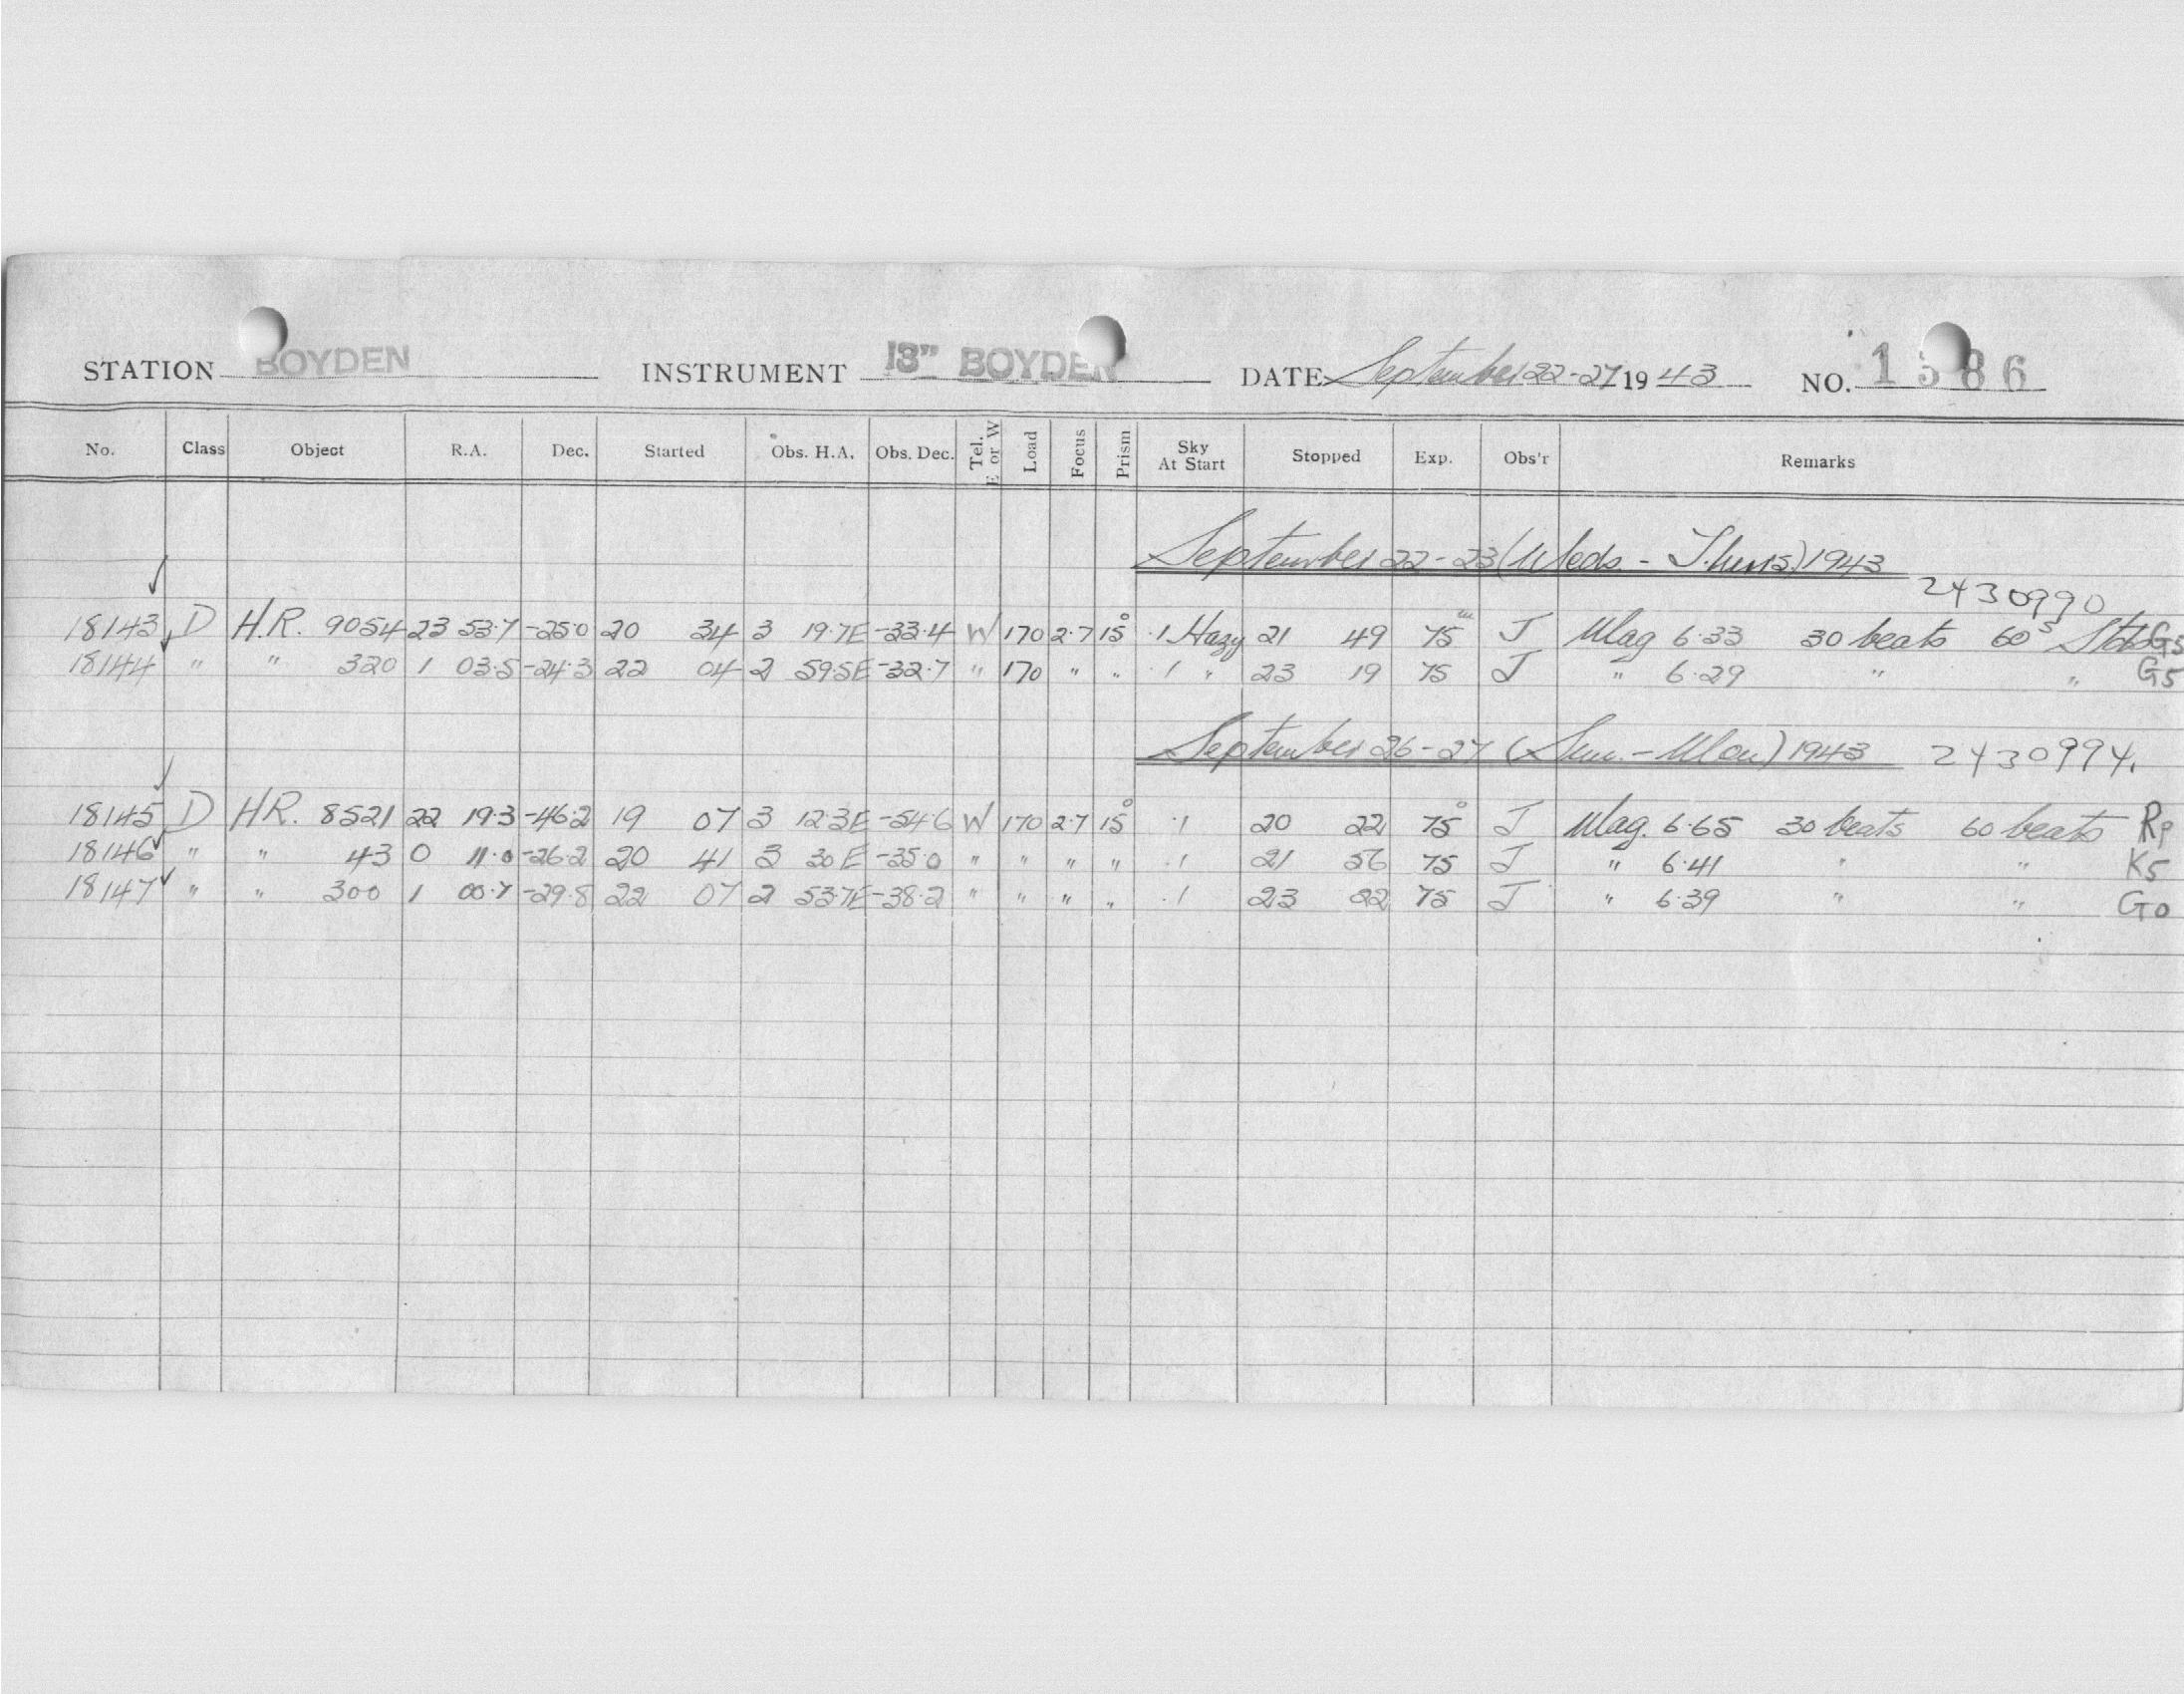 STATION BOYDEN INSTRUMENT 13" BOYDEN DATE September 22-27 1943 NO. 1386
No. Class Object R.A. Dec. Started Obs. H.A. Obs. Dec. Tel. E or W Load Focus Prism Sky At Start Stopped Exp. Obs'r Remarks
September 22-23 (Weds. - Thurs.) 1943
2430990
18143 D H.R. 9054 23 53.7 -25.0 20 34 3 19.7E -33.4 W 170 2.7 15° .1 Hazy 21 49 75 J Mag 6.33 30 beats 60s G5
18144 " " 320 1 03.5 -24.3 22 04 2 59.5E -32.7 " 170 " " .1 " 23 19 75 J " 6.29 " " G5
September 26-27 (Sun. - Mon) 1943 2430994.
18145 D HR. 8521 22 19.3 -46.2 19 07 3 12.3E -54.6 W 170 2.7 15° .1 20 22 75 J Mag. 6.65 30 beats 60 beats Rp
18146 " " 43 0 11.0 -26.2 20 41 3 30E -35.0 " " " " .1 21 56 75 J " 6.41 " " K5
18147 " " 300 1 00.7 -29.8 22 07 2 53.7E -38.2 " " " " .1 23 22 75 J " 6.39 " " G0